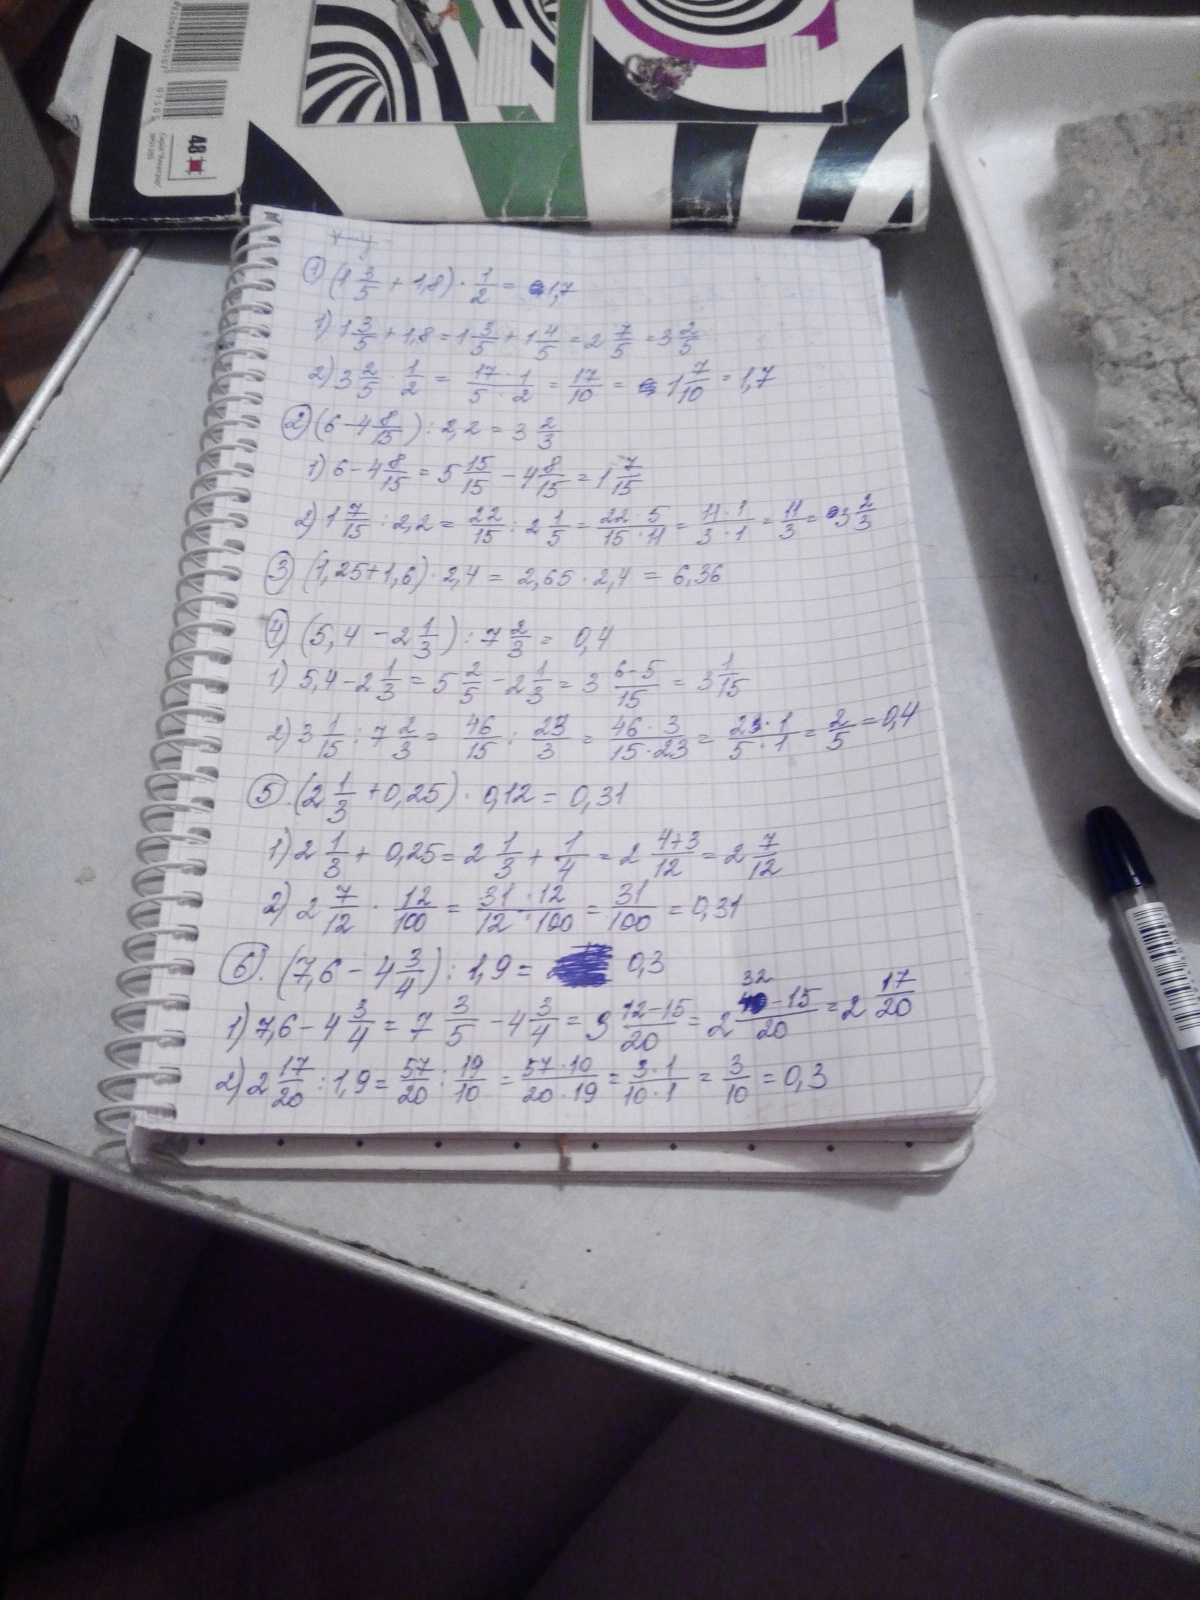 48
① (1 3/5 + 1,8) · 1/2 = 1,7
1) 1 3/5 + 1,8 = 1 3/5 + 1 4/5 = 2 7/5 = 3 2/5
2) 3 2/5 · 1/2 = 17 · 1/5 · 2 = 17/10 = 1 7/10 = 1,7
② (6 - 4 8/15) : 2,2 = 3 2/3
1) 6 - 4 8/15 = 5 15/15 - 4 8/15 = 1 7/15
2) 1 7/15 : 2,2 = 22/15 : 2 1/5 = 22 · 5/15 · 11 = 11 · 1/3 · 1 = 11/3 = 3 2/3
③ (1,25+1,6) · 2,4 = 2,65 · 2,4 = 6,36
④ (5,4 - 2 1/3) : 7 2/3 = 0,4
1) 5,4 - 2 1/3 = 5 2/5 - 2 1/3 = 3 6-5/15 = 3 1/15
2) 3 1/15 : 7 2/3 = 46/15 : 23/3 = 46 · 3/15 · 23 = 2 · 1/5 · 1 = 2/5 = 0,4
⑤. (2 1/3 + 0,25) · 0,12 = 0,31
1) 2 1/3 + 0,25 = 2 1/3 + 1/4 = 2 4+3/12 = 2 7/12
2) 2 7/12 · 12/100 = 31 · 12/12 · 100 = 31/100 = 0,31
⑥. (7,6 - 4 3/4) : 1,9 = 0,3
1) 7,6 - 4 3/4 = 7 3/5 - 4 3/4 = 3 12-15/20 = 2 32-15/20 = 2 17/20
2) 2 17/20 : 1,9 = 57/20 : 19/10 = 57 · 10/20 · 19 = 3 · 1/10 · 1 = 3/10 = 0,3